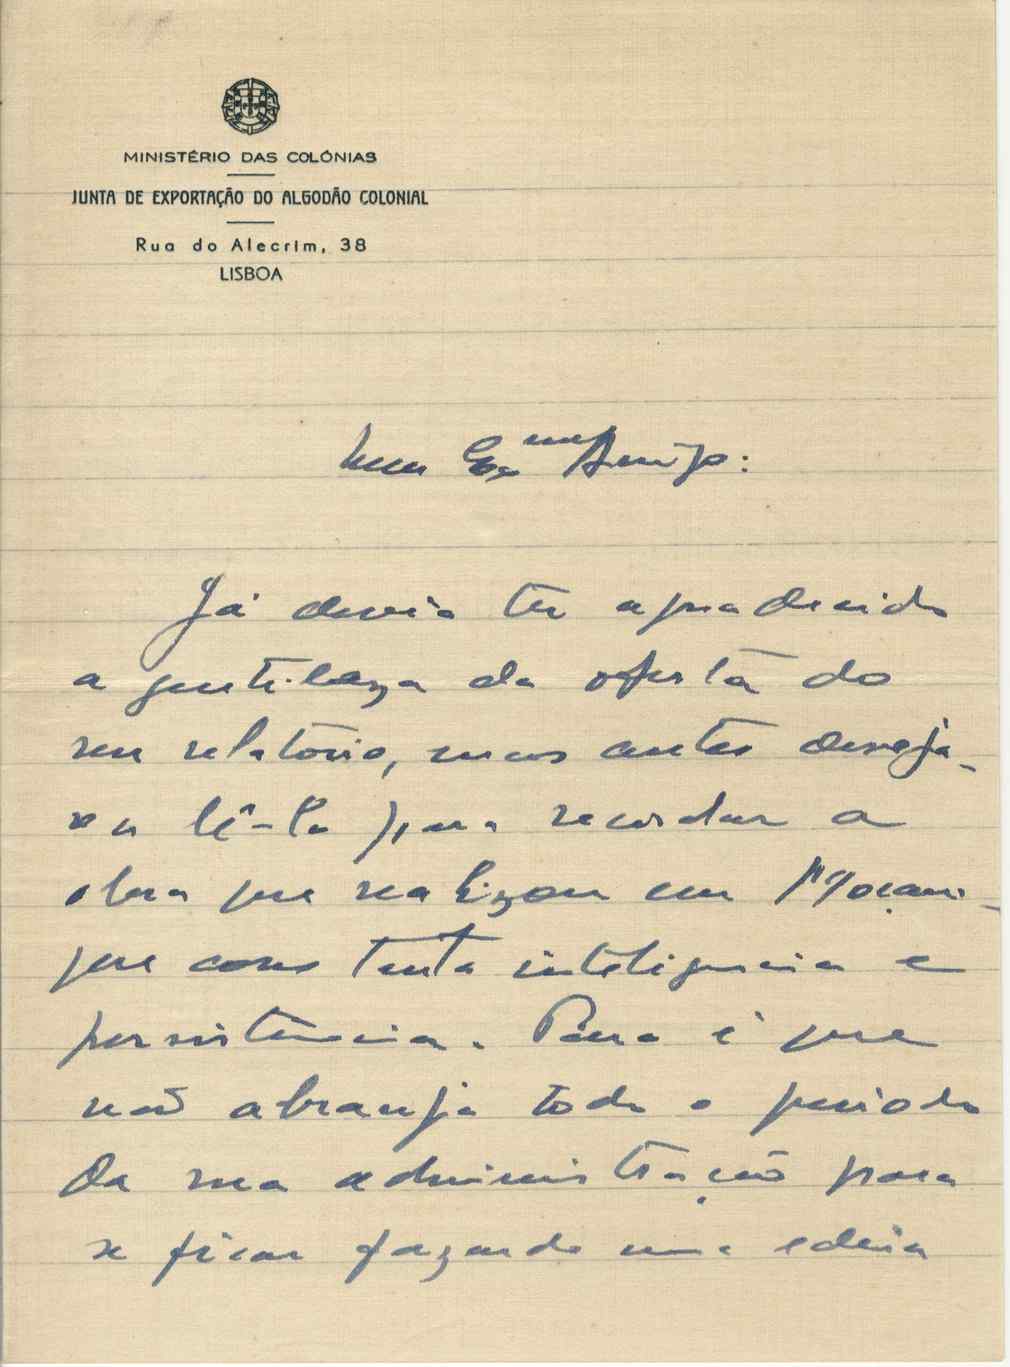 MINISTÉRIO DAS COLÓNIAS
JUNTA DE EXPORTAÇÃO DO ALGODÃO COLONIAL
Rua do Alecrim, 38
LISBOA
Meu Exmo Amigo:
Já devia ter agradecido
a gentileza da oferta do
seu relatório, mas antes deseja-
va lê-lo para recordar a
obra que realizou em Moçam-
que com tanta inteligencia e
persistência. Pena é que
não abranja todo o periodo
da sua administração para
se ficar fazendo uma edeia